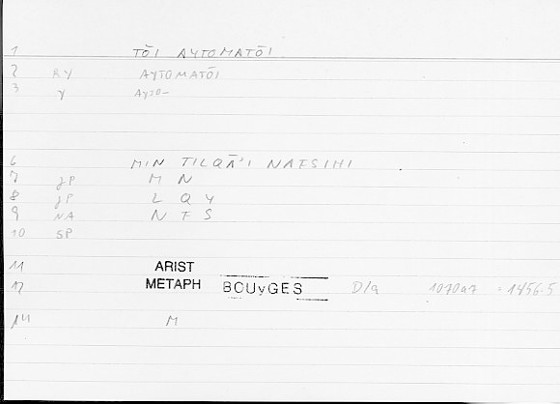 1 TŌI AYTOMATŌI
2 RY AYTOMATŌI
3 Y AYTO-
6 MIN TILQĀ'I NAFSIHI
7 JP M N
8 JP L Q Y
9 NA N F S
10 SP
11 ARIST
12 METAPH BOUyGES D/a 1070a7 = 1456.5
14 M